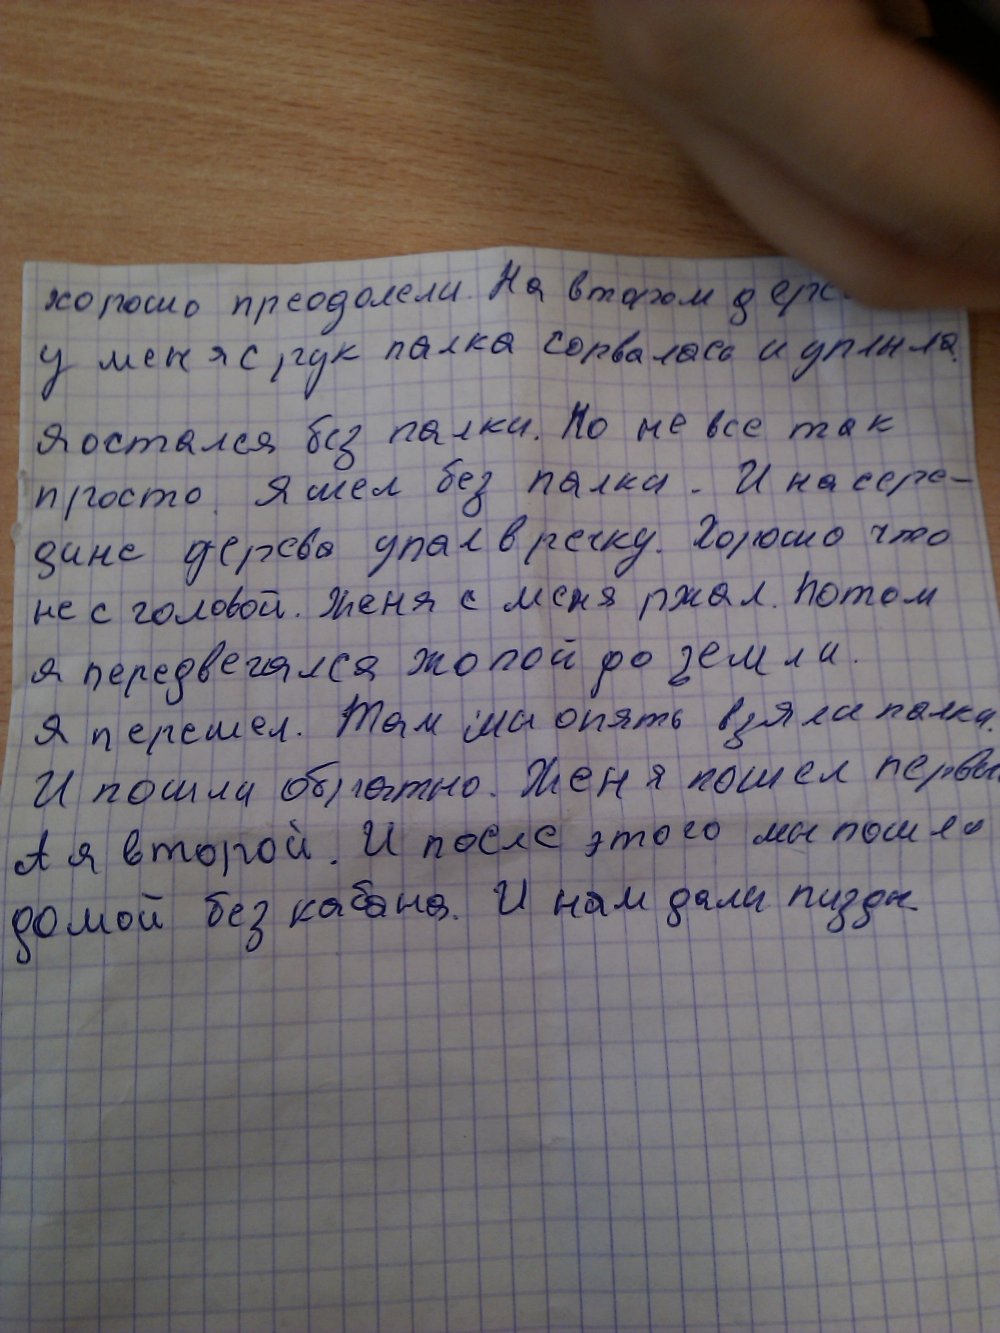 хорошо преодолели. На втором
у меня с рук палка сорвалась и уплыла.
я остался без палки. Но не все так
просто. Я шел без палки. И на сере-
дине дерева упал в речку. Хорошо что
не с головой. Женя с меня ржал. Потом
я передвегался жопой до земли.
я перешел. Там мы опять взяли палки.
И пошли обратно. Женя пошел
А я второй. И после этого мы пошли
домой без кабана. И нам дали пизды